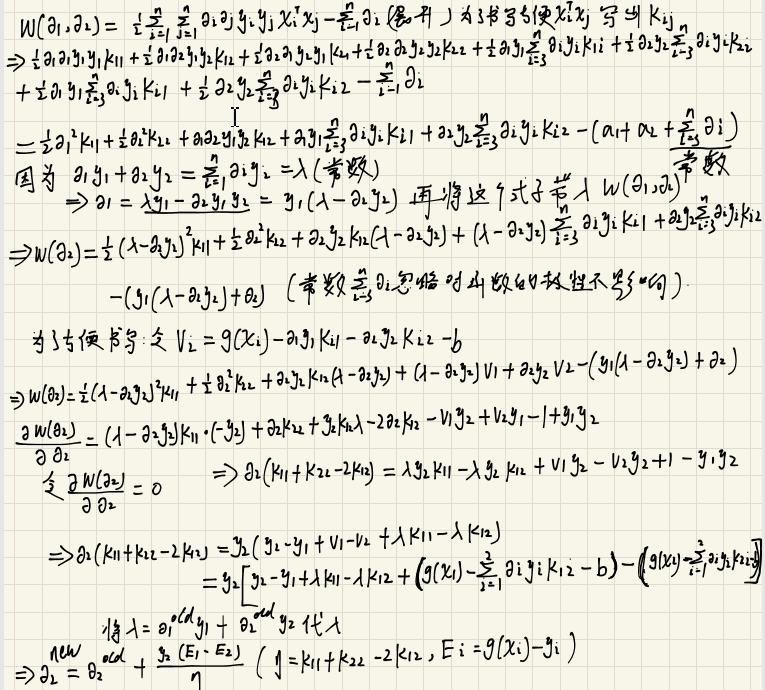 W(∂₁,∂₂) = ½ Σⁿᵢ₌₁ Σⁿⱼ₌₁ ∂ᵢ∂ⱼ yᵢyⱼ xᵢᵀxⱼ − Σⁿᵢ₌₁ ∂ᵢ (展开) 为了书写方便 xᵢᵀxⱼ 写出 Kᵢⱼ
⇒ ½∂₁∂₁y₁y₁K₁₁ + ½∂₁∂₂y₁y₂K₁₂ + ½∂₂∂₁y₂y₁K₂₁ + ½∂₂∂₂y₂y₂K₂₂ + ½∂₁y₁Σⁿᵢ₌₃ ∂ᵢyᵢK₁ᵢ + ½∂₂y₂Σⁿᵢ₌₃ ∂ᵢyᵢK₂ᵢ
+ ½∂₁y₁Σⁿᵢ₌₃ ∂ᵢyᵢKᵢ₁ + ½∂₂y₂Σⁿᵢ₌₃ ∂ᵢyᵢKᵢ₂ − Σⁿᵢ₌₁ ∂ᵢ
= ½∂₁²K₁₁ + ½∂₂²K₂₂ + ∂₁∂₂y₁y₂K₁₂ + ∂₁y₁Σⁿᵢ₌₃ ∂ᵢyᵢKᵢ₁ + ∂₂y₂Σⁿᵢ₌₃ ∂ᵢyᵢKᵢ₂ − (a₁ + a₂ + Σⁿᵢ₌₃ ∂ᵢ)
因为 ∂₁y₁ + ∂₂y₂ = Σⁿᵢ₌₁ ∂ᵢyᵢ = λ (常数) 常数
⇒ ∂₁ = λy₁ − ∂₂y₁y₂ = y₁(λ − ∂₂y₂) 再将这个式子带入 W(∂₁,∂₂)
⇒ W(∂₂) = ½(λ−∂₂y₂)²K₁₁ + ½∂₂²K₂₂ + ∂₂y₂K₁₂(λ−∂₂y₂) + (λ−∂₂y₂) Σⁿᵢ₌₃ ∂ᵢyᵢKᵢ₁ + ∂₂y₂Σⁿᵢ₌₃ ∂ᵢyᵢKᵢ₂
−(y₁(λ−∂₂y₂)+∂₂) (常数 Σⁿᵢ₌₃ ∂ᵢ 忽略 对函数的极性不影响).
为了方便书写: 令 Vᵢ = g(xᵢ) − ∂₁y₁Kᵢ₁ − ∂₂y₂Kᵢ₂ − b
⇒ W(∂₂) = ½(λ−∂₂y₂)²K₁₁ + ½∂₂²K₂₂ + ∂₂y₂K₁₂(λ−∂₂y₂) + (λ−∂₂y₂)V₁ + ∂₂y₂V₂ − (y₁(λ−∂₂y₂) + ∂₂)
∂W(∂₂)/∂∂₂ = (λ−∂₂y₂)K₁₁·(−y₂) + ∂₂K₂₂ + y₂K₁₂λ − 2∂₂K₁₂ − V₁y₂ + V₂y₁ − 1 + y₁y₂
令 ∂W(∂₂)/∂∂₂ = 0 ⇒ ∂₂(K₁₁+K₂₂−2K₁₂) = λy₂K₁₁ − λy₂K₁₂ + V₁y₂ − V₂y₂ + 1 − y₁y₂
⇒ ∂₂(K₁₁+K₂₂−2K₁₂) = y₂(y₂−y₁+V₁−V₂+λK₁₁−λK₁₂)
= y₂[y₂−y₁+λK₁₁−λK₁₂ + (g(x₁) − Σ²ᵢ₌₁ ∂ᵢyᵢKᵢ₂ − b) − (g(x₂) − Σ²ᵢ₌₁ ∂ᵢyᵢK₂ᵢ−b)]
将 λ = ∂₁ᵒˡᵈy₁ + ∂₂ᵒˡᵈy₂ 代入
⇒ ∂₂ⁿᵉʷ = ∂₂ᵒˡᵈ + y₂(E₁−E₂)/η (η = K₁₁+K₂₂−2K₁₂, Eᵢ = g(xᵢ)−yᵢ)